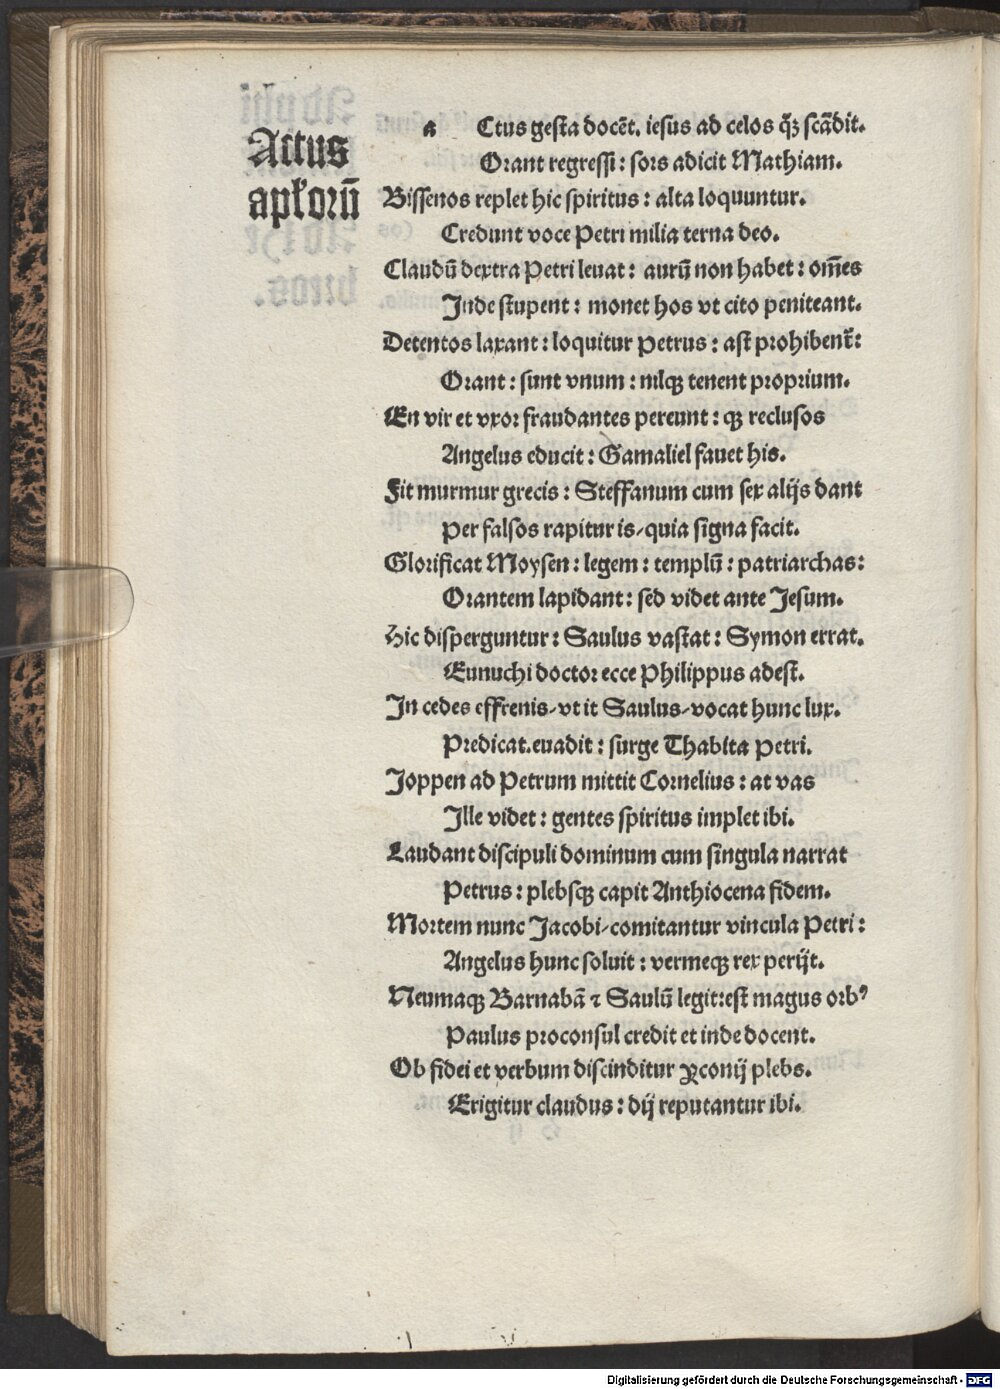 Actus
apłorū
a Ctus gesta docēt. iesus ad celos q̄ꝫ scādit.
Orant regressi: sors adicit Mathiam.
Bissenos replet hic spiritus: alta loquuntur.
Credunt voce Petri milia terna deo.
Claudū dextra Petri leuat: aurū non habet: om̄es
Inde stupent: monet hos vt cito peniteant.
Detentos laxant: loquitur Petrus: ast prohibent᷑:
Orant: sunt vnum: nilqꝫ tenent proprium.
En vir et vxor fraudantes pereunt: qꝫ reclusos
Angelus educit: Gamaliel fauet his.
Fit murmur grecis: Steffanum cum sex alijs dant
Per falsos rapitur is/quia signa facit.
Glorificat Moysen: legem: templū: patriarchas:
Orantem lapidant: sed videt ante Jesum.
Hic disperguntur: Saulus vastat: Symon errat.
Eunuchi doctor ecce Philippus adest.
In cedes effrenis/vt it Saulus/vocat hunc lux.
Predicat.euadit: surge Thabita Petri.
Joppen ad Petrum mittit Cornelius: at vas
Ille videt: gentes spiritus implet ibi.
Laudant discipuli dominum cum singula narrat
Petrus: plebsqꝫ capit Anthiocena fidem.
Mortem nunc Jacobi/comitantur vincula Petri:
Angelus hunc soluit: vermeqꝫ rex perijt.
Neumaqꝫ Barnabā ⁊ Saulū legit:est magus orbꝰ
Paulus proconsul credit et inde docent.
Ob fidei et verbum discinditur ꝓconij plebs.
Erigitur claudus: dij reputantur ibi.
Digitalisierung gefördert durch die Deutsche Forschungsgemeinschaft - DFG